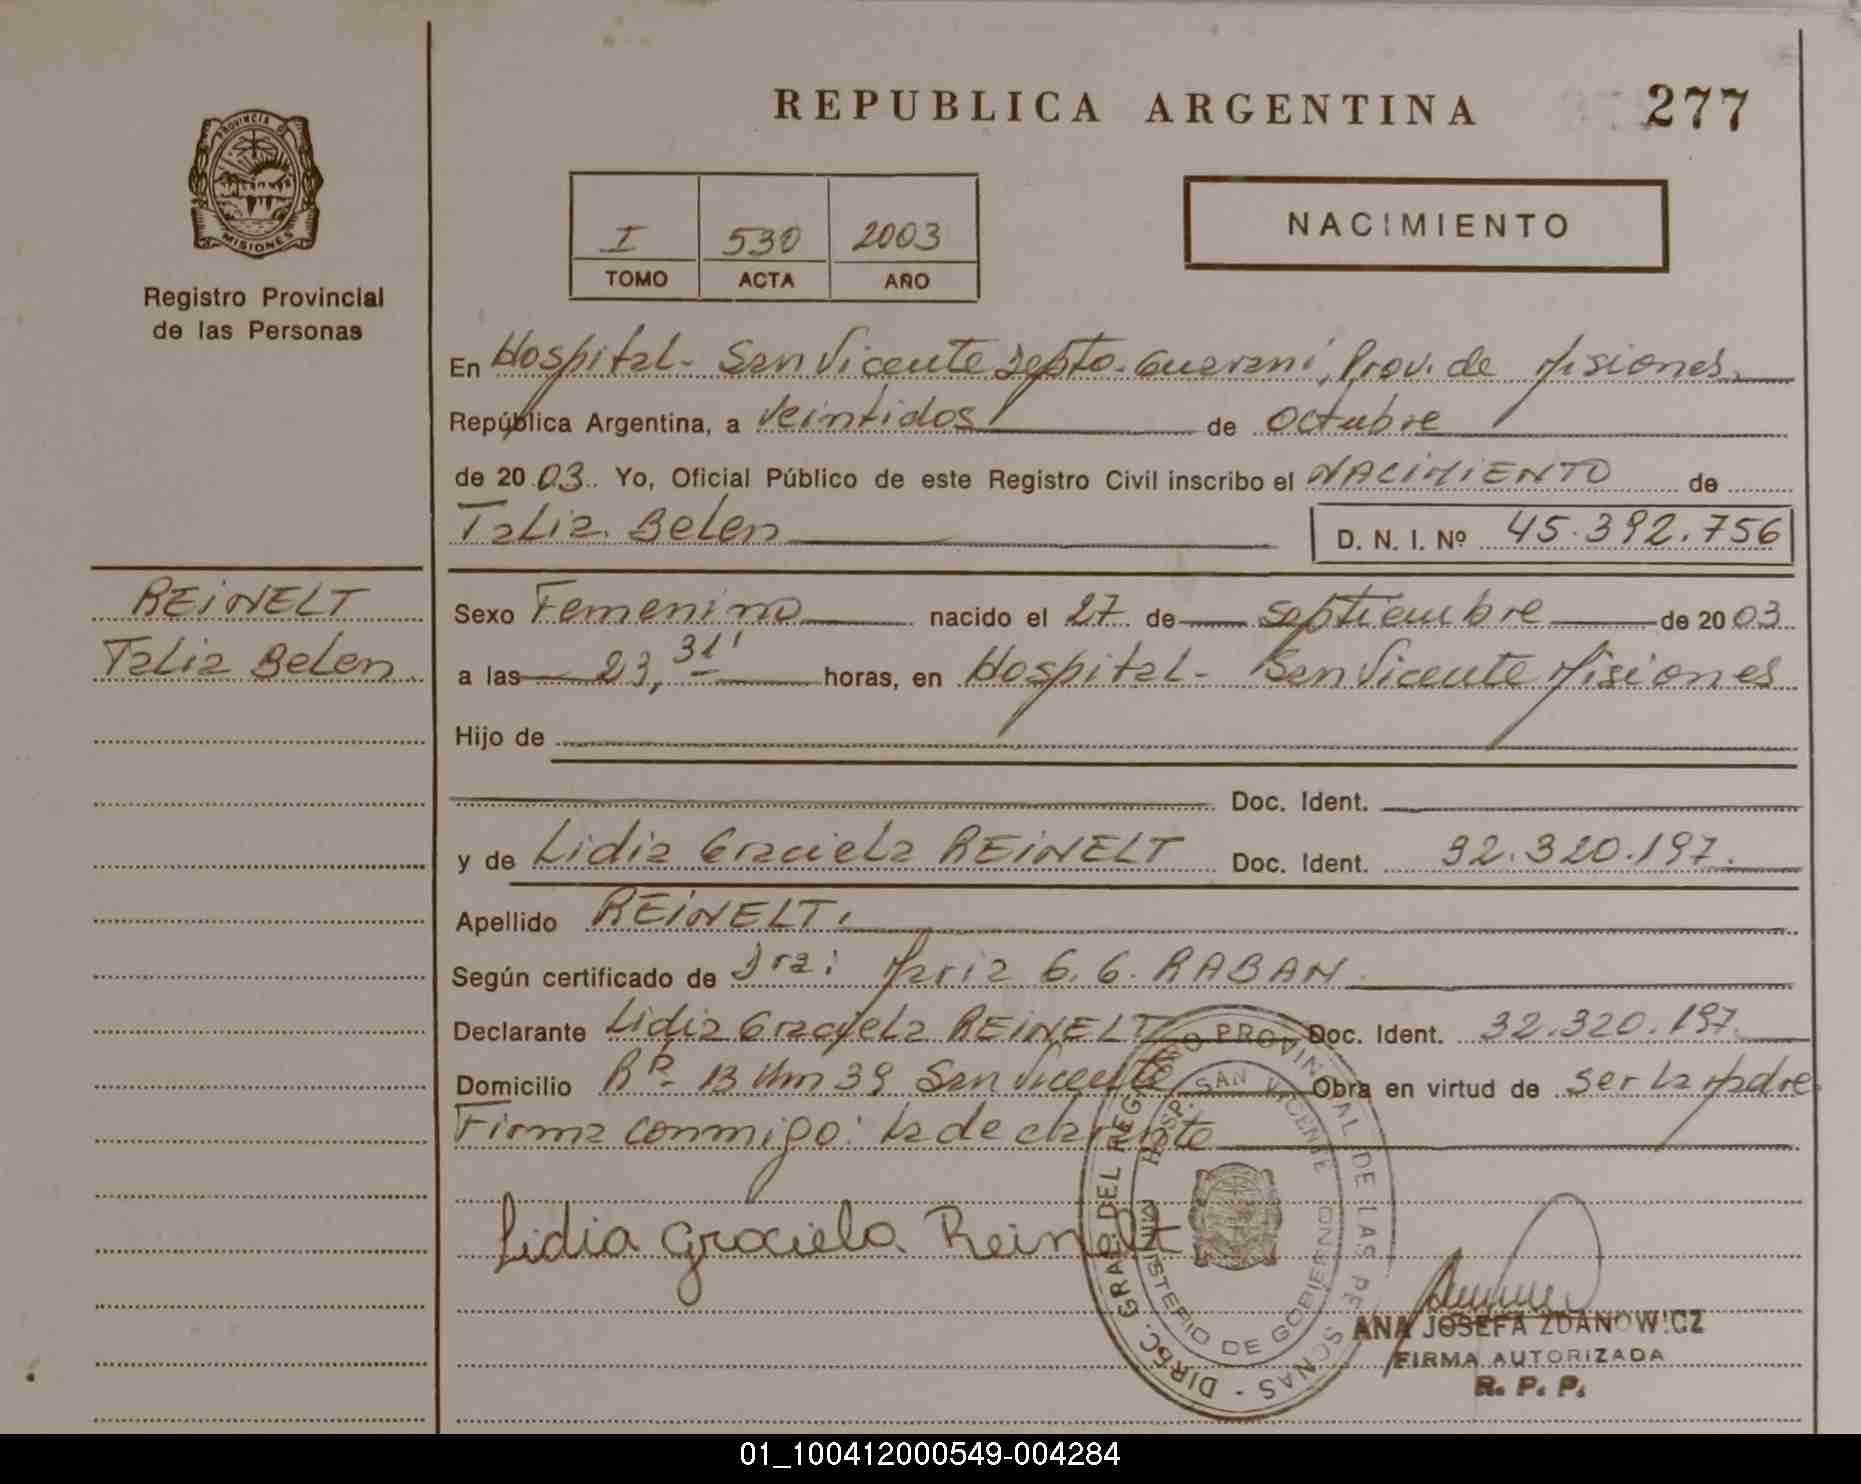 REPUBLICA ARGENTINA 277
PROVINCIA DE MISIONES
Registro Provincial
de las Personas
I 530 2003
TOMO ACTA AÑO
NACIMIENTO
En Hospital - San Vicente Depto. Guarani, Prov. de Misiones.
República Argentina, a Veintidos de Octubre
de 2003. Yo, Oficial Público de este Registro Civil inscribo el NACIMIENTO de
Talia Belen D. N. I. Nº 45.392.756
REINELT
Talia Belen
Sexo Femenino nacido el 27 de septiembre de 2003
a las 23, 31' horas, en Hospital - San Vicente Misiones
Hijo de
Doc. Ident.
y de Lidia Graciela REINELT Doc. Ident. 32.320.197.
Apellido REINELT.
Según certificado de Dra: Maria G. G. RABAN
Declarante Lidia Graciela REINELT Doc. Ident. 32.320.197
Domicilio Rª 13 Km 39 San Vicente Obra en virtud de ser la Madre
Firma conmigo: la declarante
Lidia Graciela Reinelt
DIREC. GRAL. DEL REGISTRO PROVINCIAL DE LAS PERSONAS
HOSP. SAN VICENTE
MINISTERIO DE GOBIERNO
ANA JOSEFA ZDANOWICZ
FIRMA AUTORIZADA
R. P. P.
01_100412000549-004284